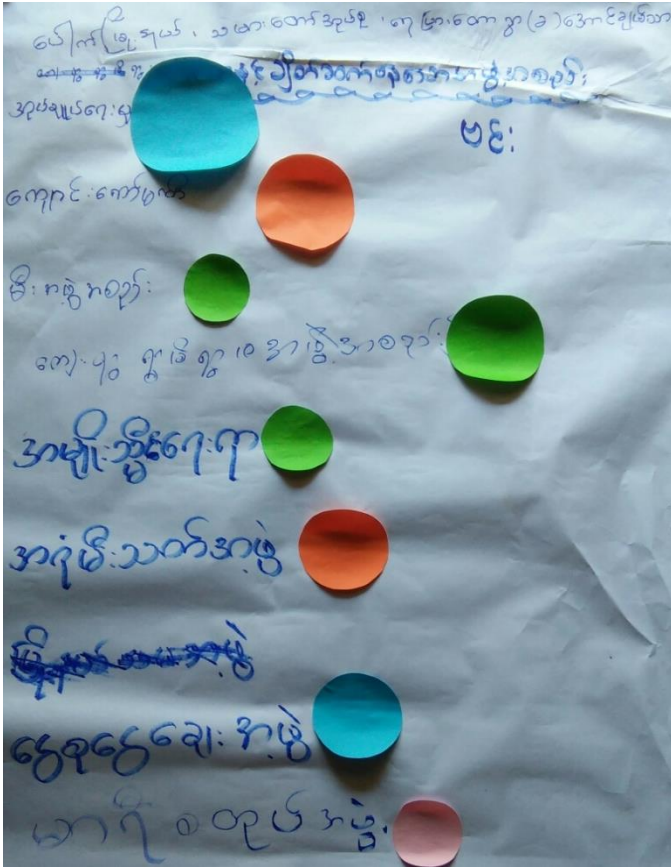 ပေါက်မြို့နယ်၊ သမားတော်အုပ်စု၊ ရေမြားတောရွာ(ခ)အောင်ချမ်းသာ
နှင့်ချိတ်ဆက်နေသောအဖွဲ့အစည်း
အုပ်ချုပ်ရေးမှူး
ဗင်း
ကျောင်းကော်မတီ
မီးအဖွဲ့အစည်း
ကျေးရွာ ရွာမိရွာဖအဖွဲ့အစည်း
အမျိုးသ္မီးရေးရာ
အရံမီးသတ်အဖွဲ့
ငွေစုငွေချေးအဖွဲ့
မာရီစတုပ်အဖွဲ့